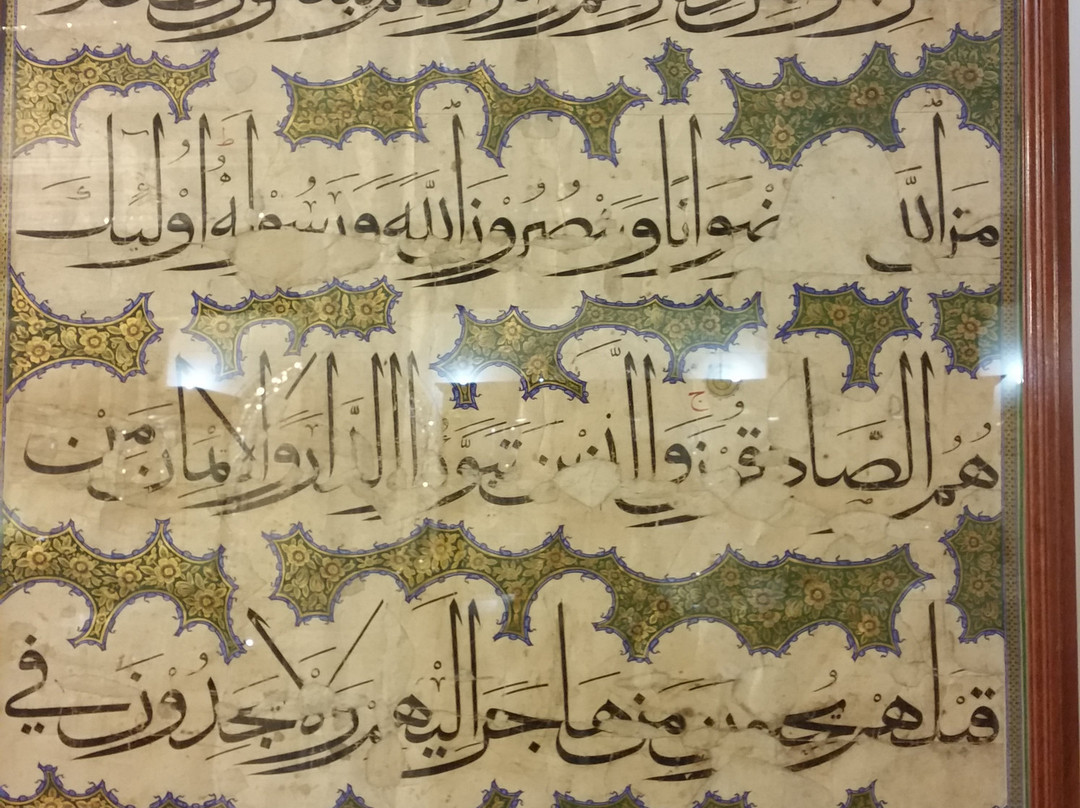 مِنَ اللَّهِ وَيَنْصُرُونَ اللَّهَ وَرَسُولَهُ أُولَئِكَ
هُمُ الصَّادِقُونَ وَالَّذِينَ تَبَوَّؤُا الدَّارَ وَالْإِيمَانَ مِنْ
قَبْلِهِمْ يُحِبُّونَ مَنْ هَاجَرَ إِلَيْهِمْ وَلَا يَجِدُونَ فِي